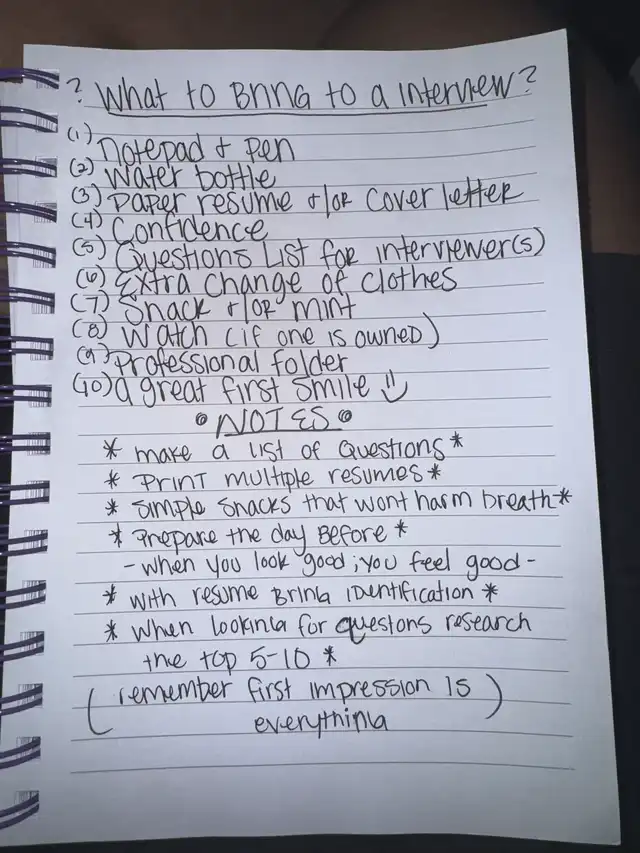 ? What to Bring to a interview?
(1) Notepad + pen
(2) Water bottle
(3) Paper resume +/or cover letter
(4) Confidence
(5) Questions List for interviewer(s)
(6) Extra change of clothes
(7) Snack +/or mint
(8) Watch (if one is owned)
(9) Professional folder
(10) a great first smile
NOTES
* make a list of Questions *
* Print multiple resumes *
* Simple snacks that wont harm breath *
* Prepare the day Before *
- when you look good; you feel good -
* with resume Bring identification *
* when looking for questons research
the top 5-10 *
( remember first impression is )
everything